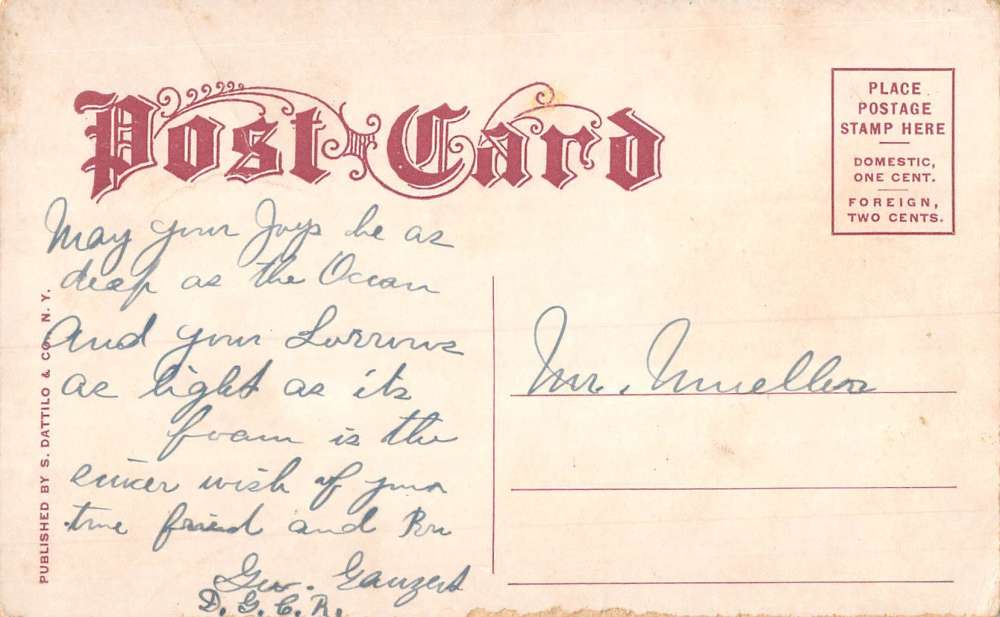 Post Card
PLACE
POSTAGE
STAMP HERE
DOMESTIC,
ONE CENT.
FOREIGN,
TWO CENTS.
May your Joys be as
deep as the Ocean
And your Sorrows
as light as its
foam is the
sincer wish of your
true friend and Bro
Geo. Ganzert
D. G. C. R.
Mr. Mueller
PUBLISHED BY S. DATTILO & CO., N. Y.